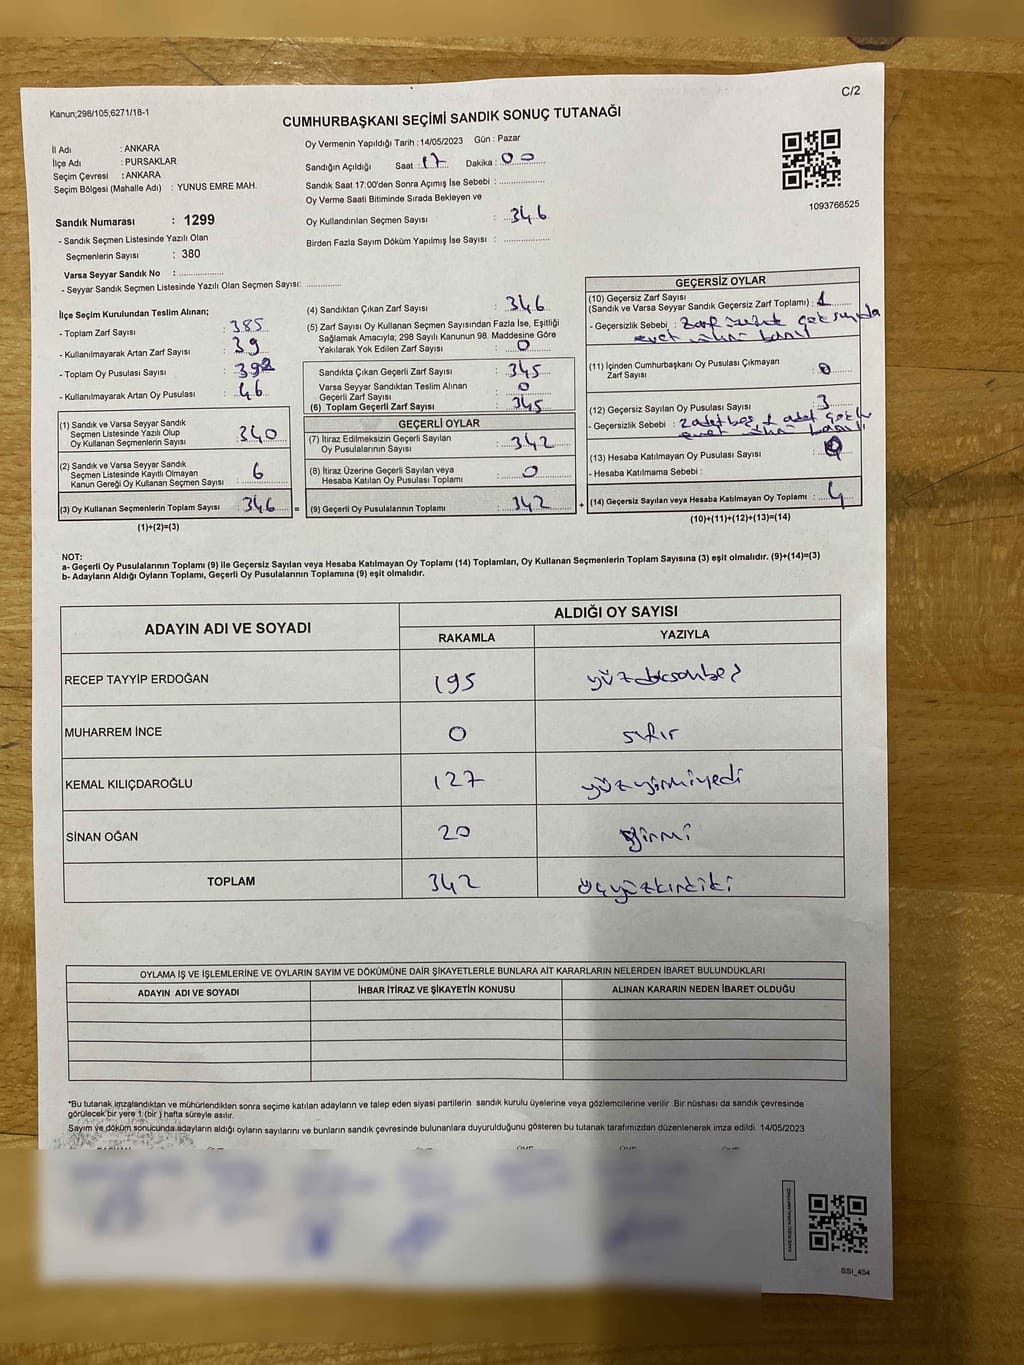 Kanun;298/105;6271/18-1
C/2
CUMHURBAŞKANI SEÇİMİ SANDIK SONUÇ TUTANAĞI
İl Adı : ANKARA
İlçe Adı : PURSAKLAR
Seçim Çevresi : ANKARA
Seçim Bölgesi (Mahalle Adı) : YUNUS EMRE MAH.
Oy Vermenin Yapıldığı Tarih : 14/05/2023 Gün : Pazar
Sandığın Açıldığı Saat : 17 Dakika : 00
Sandık Saat 17:00'den Sonra Açımış İse Sebebi :
Oy Verme Saati Bitiminde Sırada Bekleyen ve
Oy Kullandırılan Seçmen Sayısı : 346
Birden Fazla Sayım Döküm Yapılmış İse Sayısı :
1093766525
Sandık Numarası : 1299
- Sandık Seçmen Listesinde Yazılı Olan
Seçmenlerin Sayısı : 380
Varsa Seyyar Sandık No :
- Seyyar Sandık Seçmen Listesinde Yazılı Olan Seçmen Sayısı:
İlçe Seçim Kurulundan Teslim Alınan;
- Toplam Zarf Sayısı : 385
- Kullanılmayarak Artan Zarf Sayısı : 39
- Toplam Oy Pusulası Sayısı : 392
- Kullanılmayarak Artan Oy Pusulası : 46
(1) Sandık ve Varsa Seyyar Sandık
Seçmen Listesinde Yazılı Olup
Oy Kullanan Seçmenlerin Sayısı : 340
(2) Sandık ve Varsa Seyyar Sandık
Seçmen Listesinde Kayıtlı Olmayan
Kanun Gereği Oy Kullanan Seçmen Sayısı : 6
(3) Oy Kullanan Seçmenlerin Toplam Sayısı : 346 =
(1)+(2)=(3)
(4) Sandıktan Çıkan Zarf Sayısı : 346
(5) Zarf Sayısı Oy Kullanan Seçmen Sayısından Fazla İse, Eşitliği
Sağlamak Amacıyla; 298 Sayılı Kanunun 98. Maddesine Göre
Yakılarak Yok Edilen Zarf Sayısı : 0
Sandıkta Çıkan Geçerli Zarf Sayısı : 345
Varsa Seyyar Sandıktan Teslim Alınan
Geçerli Zarf Sayısı : 0
(6) Toplam Geçerli Zarf Sayısı : 345
GEÇERLİ OYLAR
(7) İtiraz Edilmeksizin Geçerli Sayılan
Oy Pusulalarının Sayısı : 342
(8) İtiraz Üzerine Geçerli Sayılan veya
Hesaba Katılan Oy Pusulası Toplamı : 0
(9) Geçerli Oy Pusulalarının Toplamı : 342 +
GEÇERSİZ OYLAR
(10) Geçersiz Zarf Sayısı
(Sandık ve Varsa Seyyar Sandık Geçersiz Zarf Toplamı) : 1
- Geçersizlik Sebebi : Zarf
evet
(11) İçinden Cumhurbaşkanı Oy Pusulası Çıkmayan
Zarf Sayısı : 0
(12) Geçersiz Sayılan Oy Pusulası Sayısı : 3
- Geçersizlik Sebebi : 2 adet boş 1 adet
evet
(13) Hesaba Katılmayan Oy Pusulası Sayısı : 0
- Hesaba Katılmama Sebebi :
(14) Geçersiz Sayılan veya Hesaba Katılmayan Oy Toplamı : 4
(10)+(11)+(12)+(13)=(14)
NOT:
a- Geçerli Oy Pusulalarının Toplamı (9) ile Geçersiz Sayılan veya Hesaba Katılmayan Oy Toplamı (14) Toplamları, Oy Kullanan Seçmenlerin Toplam Sayısına (3) eşit olmalıdır. (9)+(14)=(3)
b- Adayların Aldığı Oyların Toplamı, Geçerli Oy Pusulalarının Toplamına (9) eşit olmalıdır.
ADAYIN ADI VE SOYADI
ALDIĞI OY SAYISI
RAKAMLA YAZIYLA
RECEP TAYYİP ERDOĞAN 195 yüzdoksanbeş
MUHARREM İNCE 0 sıfır
KEMAL KILIÇDAROĞLU 127 yüzyirmiyedi
SİNAN OĞAN 20 yirmi
TOPLAM 342 üçyüzkırkiki
OYLAMA İŞ VE İŞLEMLERİNE VE OYLARIN SAYIM VE DÖKÜMÜNE DAİR ŞİKAYETLERLE BUNLARA AİT KARARLARIN NELERDEN İBARET BULUNDUKLARI
ADAYIN ADI VE SOYADI İHBAR İTİRAZ VE ŞİKAYETİN KONUSU ALINAN KARARIN NEDEN İBARET OLDUĞU
*Bu tutanak imzalandıktan ve mühürlendikten sonra seçime katılan adayların ve talep eden siyasi partilerin sandık kurulu üyelerine veya gözlemcilerine verilir .Bir nüshası da sandık çevresinde
görülecek bir yere 1 (bir ) hafta süreyle asılır.
Sayım ve döküm sonucunda adayların aldığı oyların sayılarını ve bunların sandık çevresinde bulunanlara duyurulduğunu gösteren bu tutanak tarafımızdan düzenlenerek imza edildi. 14/05/2023
SSI_404